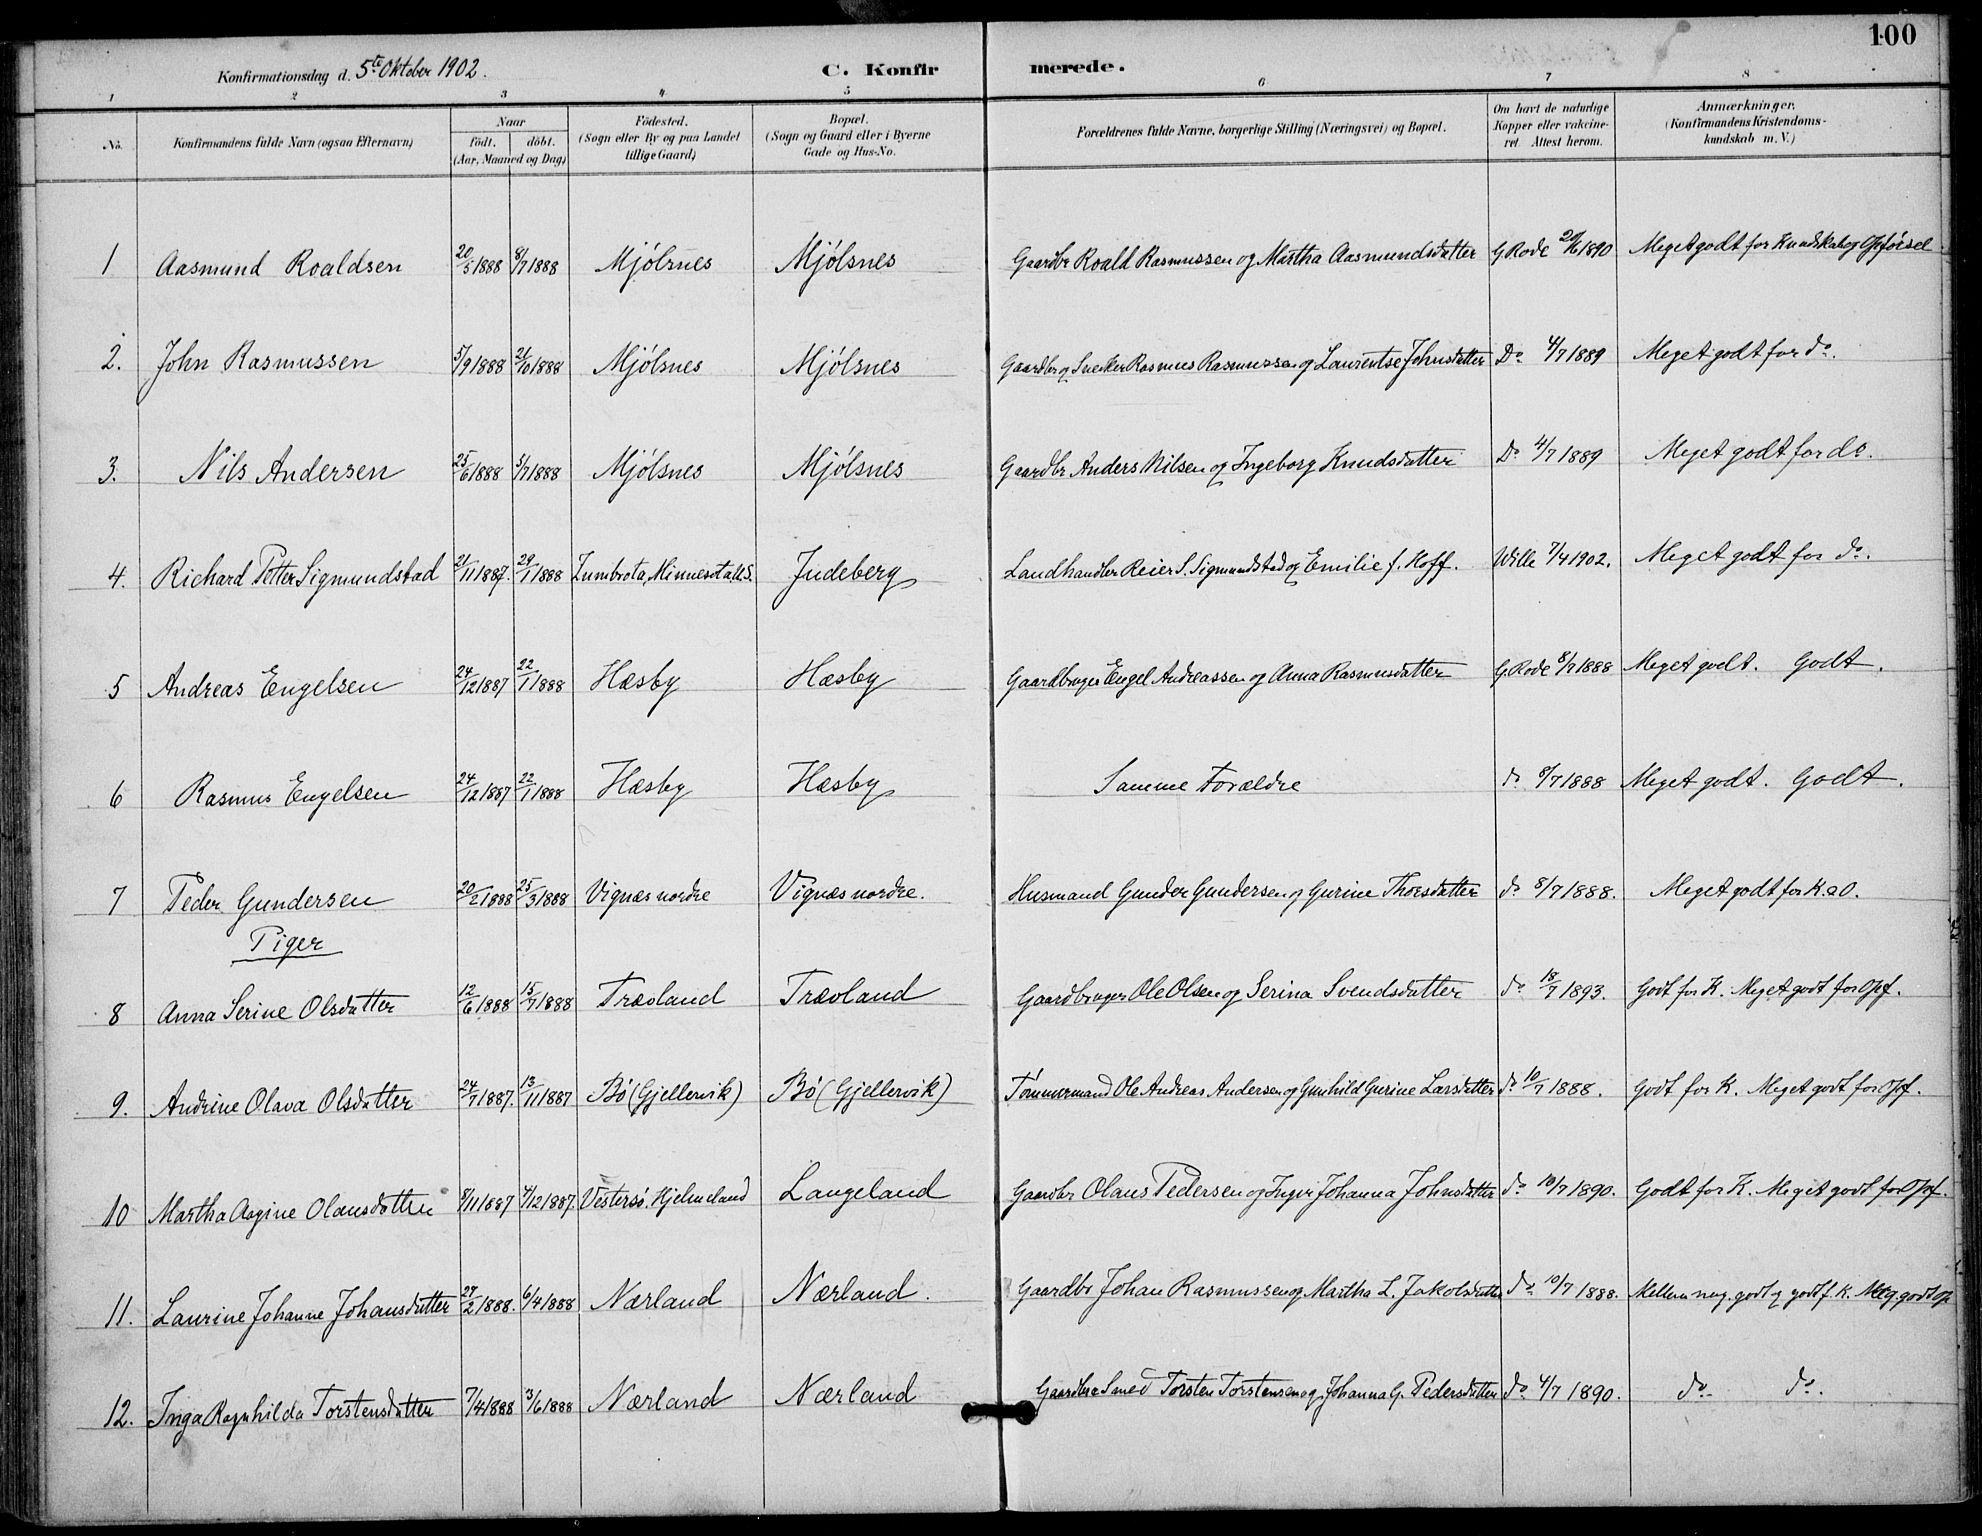 100
Konfirmationsdag d. 5te Oktober 1902.
C. Konfirmerede.
1 2 3 4 5 6 7 8
No. Konfirmandens fulde Navn (ogsaa Efternavn) Naar födt. döbt. (Aar, Maaned og Dag) Födested. (Sogn eller By og paa Landet tillige Gaard) Bopæl. (Sogn og Gaard eller i Byerne Gade og Hus-No. Forældrenes fulde Navne, borgerlige Stilling (Næringsvei) og Bopæl. Om havt de naturlige Kopper eller vakcineret. Attest herom. Anmærkninger. (Konfirmandens Kristendomskundskab m. V.)
1 Aasmund Roaldsen 20/5 1888 8/7 1888 Mjölsnes Mjölsnes Gaardbr Roald Rasmussen og Martha Aasmundsdatter G Rode 29/6 1890 Meget godt for Kundskab og Opförsel
2. John Rasmussen 5/9 1888 21/10 1888 Mjölsnes Mjölsnes Gaardbr og Snecker Rasmus Rasmussen og Laurentse Johnsdatter Do 4/7 1889 Meget godt for do.
3. Nils Andersen 25/6 1888 5/7 1888 Mjölsnes Mjölsnes Gaardbr Anders Nilsen og Ingeborg Knudsdatter Do 4/7 1889 Meget godt for do.
4. Richard Petter Sigmundstad 21/11 1887. 29/1 1888 Zumbrota, Minnesota U.S. Judeberg Landhandler Reier S. Sigmundstad og Emilie f. Hoff. Wille 7/4 1902. Meget godt for do.
5 Andreas Engelsen 24/12 1887 22/1 1888 Hæsby Hæsby Gaardbruger Engel Andreassen og Anna Rasmusdatter G. Rode 8/7 1888 Meget godt. Godt.
6 Rasmus Engelsen 24/12 1887 22/1 1888 Hæsby Hæsby Samme Forældre do 8/7 1888 Meget godt. Godt.
7 Peder Gundersen 20/2 1888 25/3 1888 Vignæs nordre Vignæs nordre. Husmand Gunder Gundersen og Gurine Thoresdatter do 8/7 1888. Meget godt for K. a O.
Piger
8 Anna Serine Olsdatter 12/6 1888 15/7 1888 Trævland Trævland Gaardbruger Ole Olsen og Serina Svendsdatter do 18/7 1893. Godt for K. Meget godt for Opf.
9. Andrine Olava Olsdatter 24/7 1887. 13/11 1887 Bö (Gjellervik) Bö (Gjellervik) Tömmermand Ole Andreas Andersen og Gunhild Gurine Larsdatter do 10/7 1888. Godt for K. Meget godt for Opf.
10 Martha Aagine Olausdatter 8/11 1887 4/12 1887. Vestersö. Hjelmeland Langeland Gaardbr Olaus Pedersen og Ingri Johanna Johnsdatter do 10/7 1890. Godt for K. Meget godt for Opf.
11. Laurine Johanne Johansdatter 27/2 1888. 6/4 1888 Nærland Nærland. Gaardbr Johan Rasmussen og Martha L. Jakobsdatter do 10/7 1888. Mellem meg. godt og godt f. K. Meg. godt Op
12. Inga Ragnhilda Torstensdatter 7/4 1888 3/6 1888 Nærland Nærland Gaardbr a Smed Torsten Torstensen og Johanna G. Pedersdatter do 4/7 1890. do do.